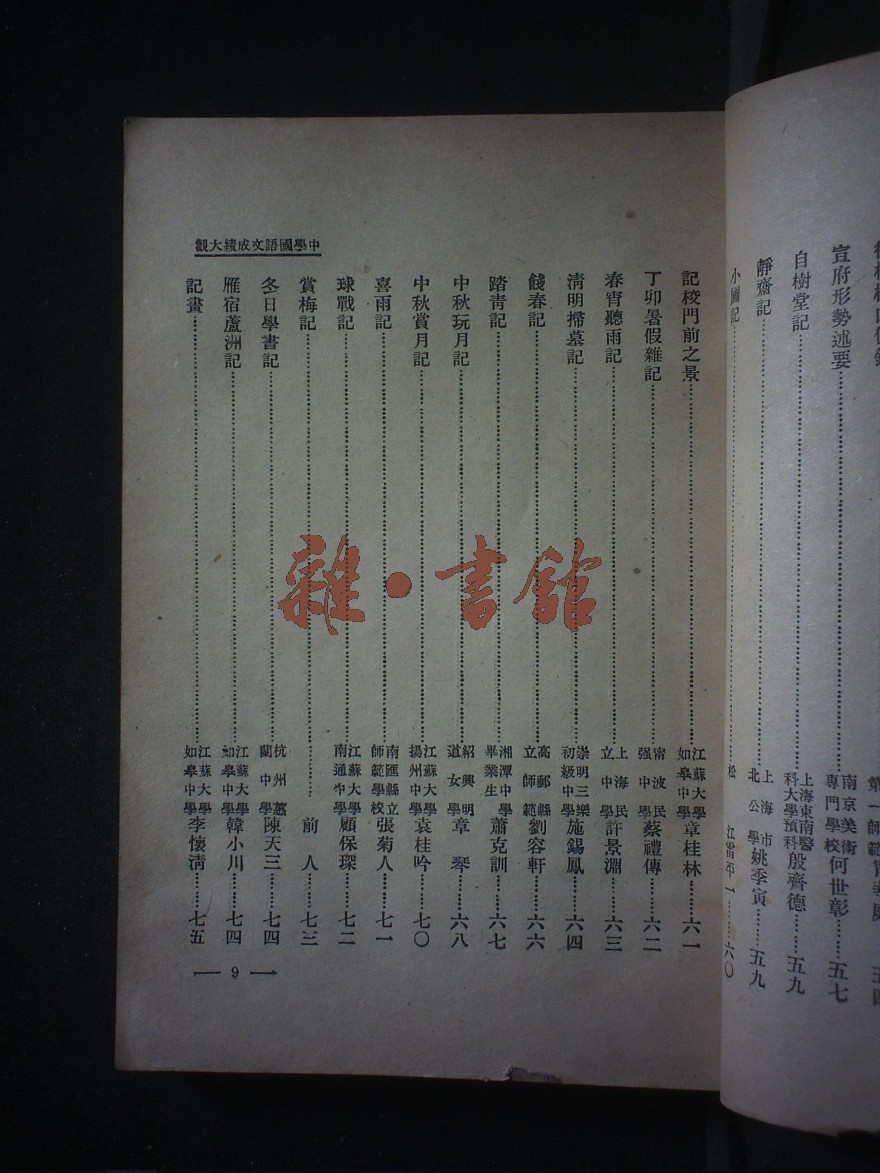 宣府形勢述要……南京美術專門學校何世彰……五七
自樹堂記……上海東南醫科大學預科殷齊德……五九
靜齋記……上海市北公學姚季寅……五九
中學國語文成績大觀
記校門前之景……江蘇大學如皋中學章桂林……六一
丁卯暑假雜記……甯波民强中學蔡禮傳……六二
春宵聽雨記……上海民立中學許景淵……六三
清明掃墓記……崇明三樂初級中學施錫鳳……六四
餞春記……高郵縣立師範劉容軒……六六
踏靑記……湘潭中學畢業生蕭克訓……六七
中秋玩月記……紹興明道女學章琴……六八
中秋賞月記……江蘇大學揚州中學袁桂吟……七〇
喜雨記……南匯縣立師範學校張菊人……七一
球戰記……江蘇大學南通中學顧保琛……七二
賞梅記……前人……七三
冬日學書記……杭州蕙蘭中學陳天三……七四
雁宿蘆洲記……江蘇大學如皋中學韓小川……七四
記畫……江蘇大學如皋中學李懷淸……七五
9
雜·書館